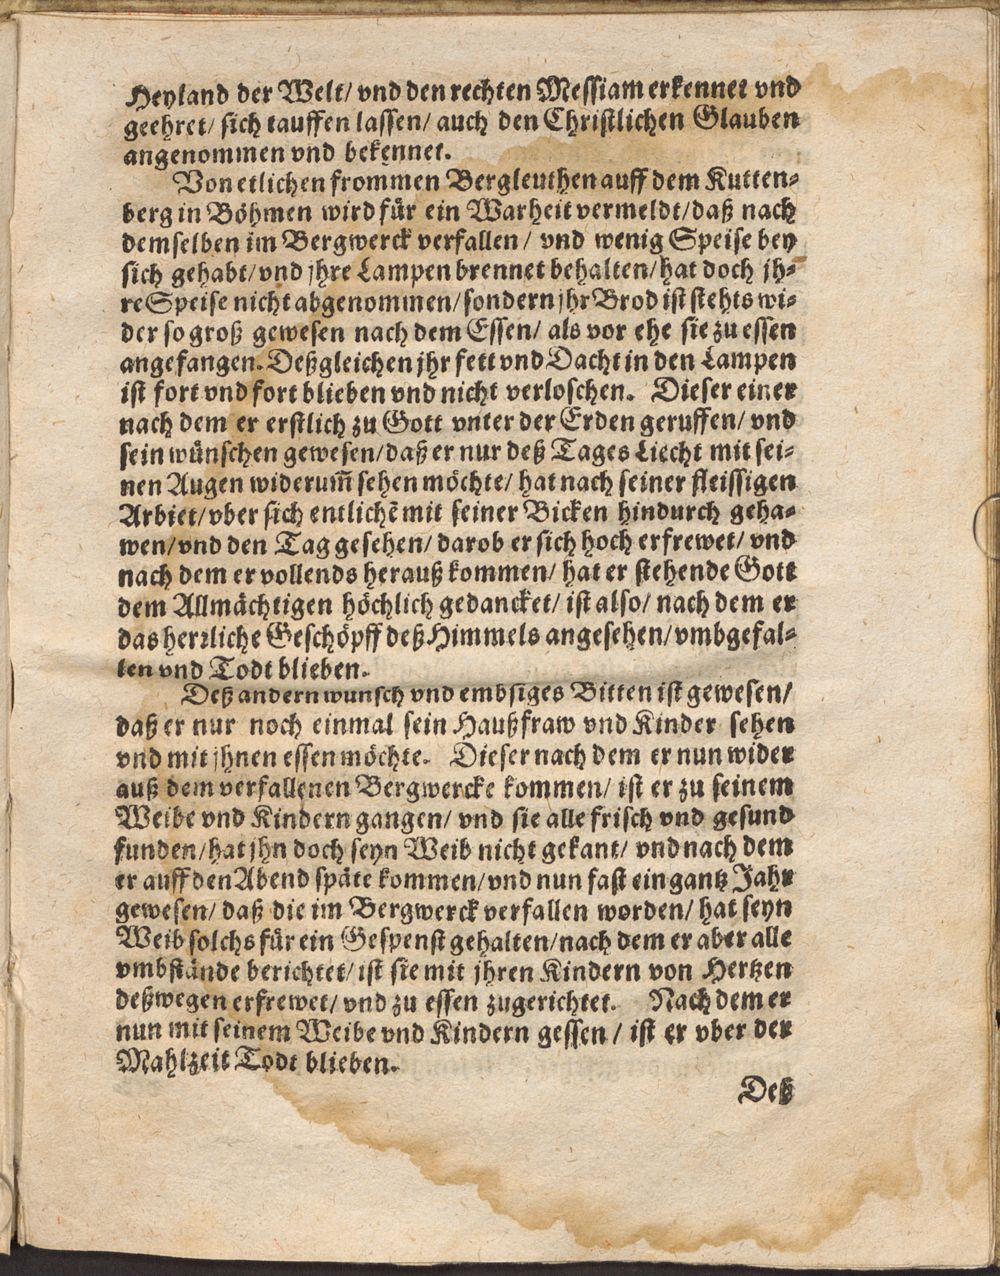 Heyland der Welt/ vnd den rechten Messiam erkennet vnd
geehret/ sich tauffen lassen/ auch den Christlichen Glauben
angenommen vnd bekennet.
Von etlichen frommen Bergleuthen auff dem Kutten-
berg in Böhmen wird für ein Warheit vermeldt/ daß nach
demselben im Bergwerck verfallen / vnd wenig Speise bey
sich gehabt/ vnd jhre Lampen brennet behalten/ hat doch jh-
re Speise nicht abgenommen/ sondern jhr Brod ist stehts wi-
der so groß gewesen nach dem Essen/ als vor ehe sie zu essen
angefangen. Deßgleichen jhr fett vnd Dacht in den Lampen
ist fort vnd fort blieben vnd nicht verloschen. Dieser einer
nach dem er erstlich zu Gott vnter der Erden geruffen/ vnd
sein wünschen gewesen/ daß er nur deß Tages Liecht mit sei-
nen Augen widerum̃ sehen möchte/ hat nach seiner fleissigen
Arbiet/ vber sich entlichẽ mit seiner Bicken hindurch geha-
wen/ vnd den Tag gesehen/ darob er sich hoch erfrewet/ vnd
nach dem er vollends herauß kommen/ hat er stehende Gott
dem Allmächtigen höchlich gedancket/ ist also/ nach dem er
das herrliche Geschöpff deß Himmels angesehen/ vmbgefal-
len vnd Todt blieben.
Deß andern wunsch vnd embsiges Bitten ist gewesen/
daß er nur noch einmal sein Haußfraw vnd Kinder sehen
vnd mit jhnen essen möchte. Dieser nach dem er nun wider
auß dem verfallenen Bergwercke kommen/ ist er zu seinem
Weibe vnd Kindern gangen/ vnd sie alle frisch vnd gesund
funden/ hat jhn doch seyn Weib nicht gekant/ vnd nach dem
er auff den Abend späte kommen/ vnd nun fast ein gantz Jahr
gewesen/ daß die im Bergwerck verfallen worden/ hat seyn
Weib solchs für ein Gespenst gehalten/ nach dem er aber alle
vmbstände berichtet/ ist sie mit jhren Kindern von Hertzen
deßwegen erfrewet/ vnd zu essen zugerichtet. Nach dem er
nun mit seinem Weibe vnd Kindern gessen / ist er vber der
Mahlzeit Todt blieben.
Deß